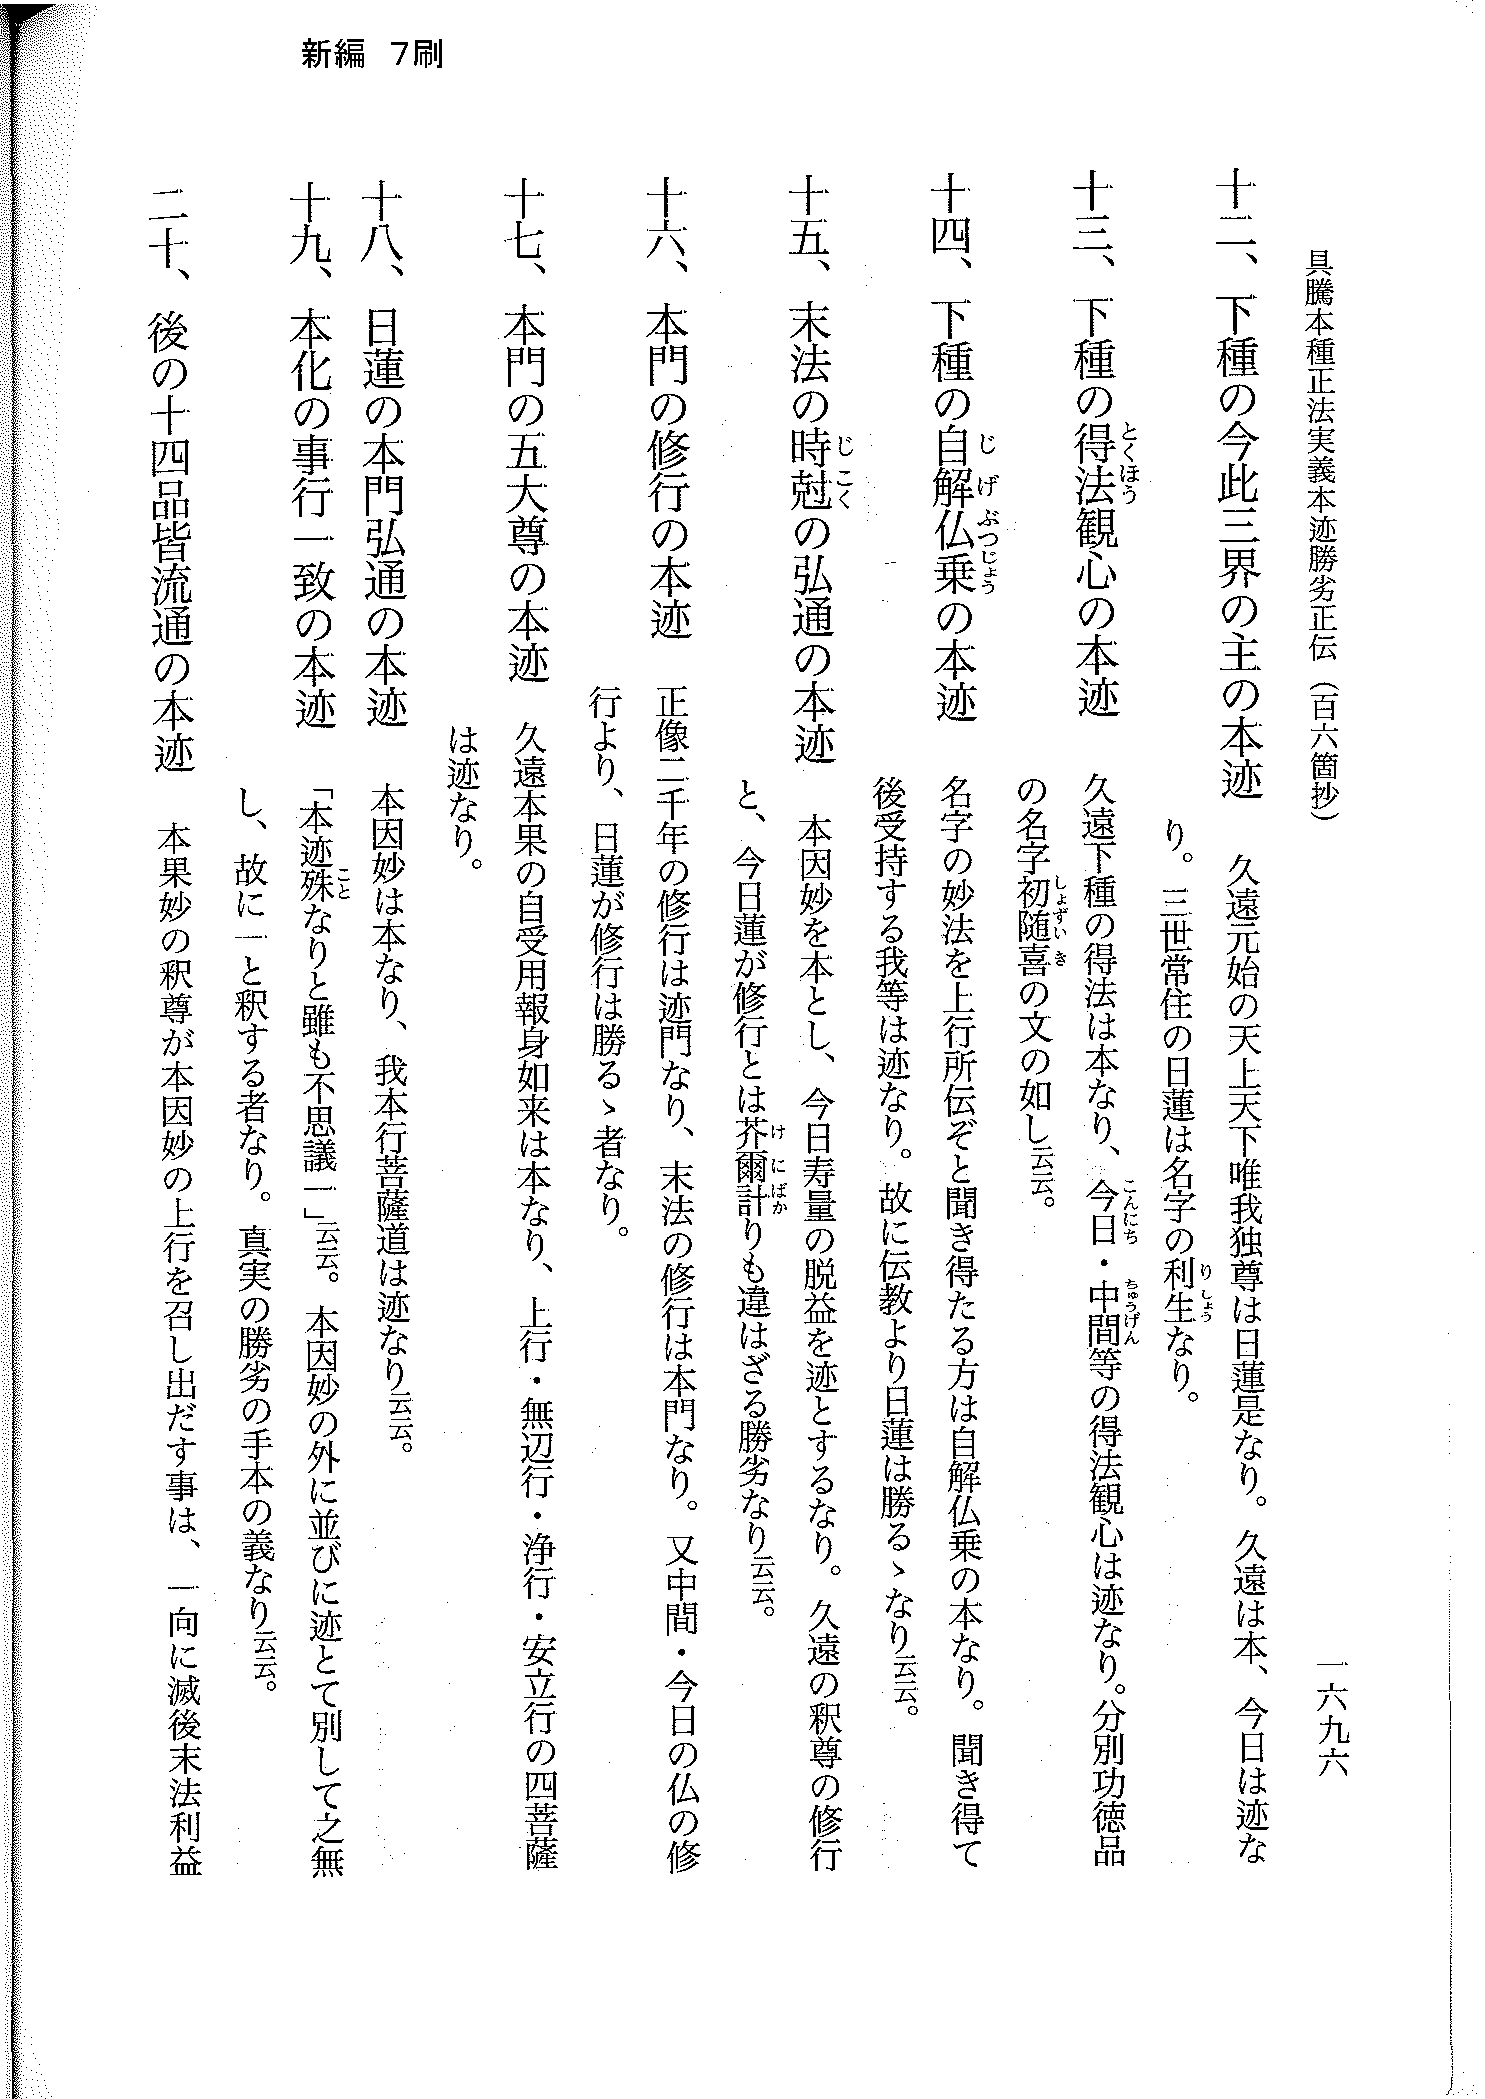 新編　7刷
具騰本種正法実義本迹勝劣正伝（百六箇抄）
一六九六
十二、下種の今此三界の主の本迹　久遠元始の天上天下唯我独尊は日蓮是なり。久遠は本、今日は迹な
り。三世常住の日蓮は名字の利生なり。
十三、下種の得法観心の本迹　久遠下種の得法は本なり、今日・中間等の得法観心は迹なり。分別功徳品
の名字初随喜の文の如し云云。
十四、下種の自解仏乗の本迹　名字の妙法を上行所伝ぞと聞き得たる方は自解仏乗の本なり。聞き得て
後受持する我等は迹なり。故に伝教より日蓮は勝るゝなり云云。
十五、末法の時尅の弘通の本迹　本因妙を本とし、今日寿量の脱益を迹とするなり。久遠の釈尊の修行
と、今日蓮が修行とは芥爾計りも違はざる勝劣なり云云。
十六、本門の修行の本迹　正像二千年の修行は迹門なり、末法の修行は本門なり。又中間・今日の仏の修
行より、日蓮が修行は勝るゝ者なり。
十七、本門の五大尊の本迹　久遠本果の自受用報身如来は本なり、上行・無辺行・浄行・安立行の四菩薩
は迹なり。
十八、日蓮の本門弘通の本迹　本因妙は本なり、我本行菩薩道は迹なり云云。
十九、本化の事行一致の本迹　「本迹殊なりと雖も不思議一」云云。本因妙の外に並びに迹とて別して之無
し、故に一と釈する者なり。真実の勝劣の手本の義なり云云。
二十、後の十四品皆流通の本迹　本果妙の釈尊が本因妙の上行を召し出だす事は、一向に滅後末法利益